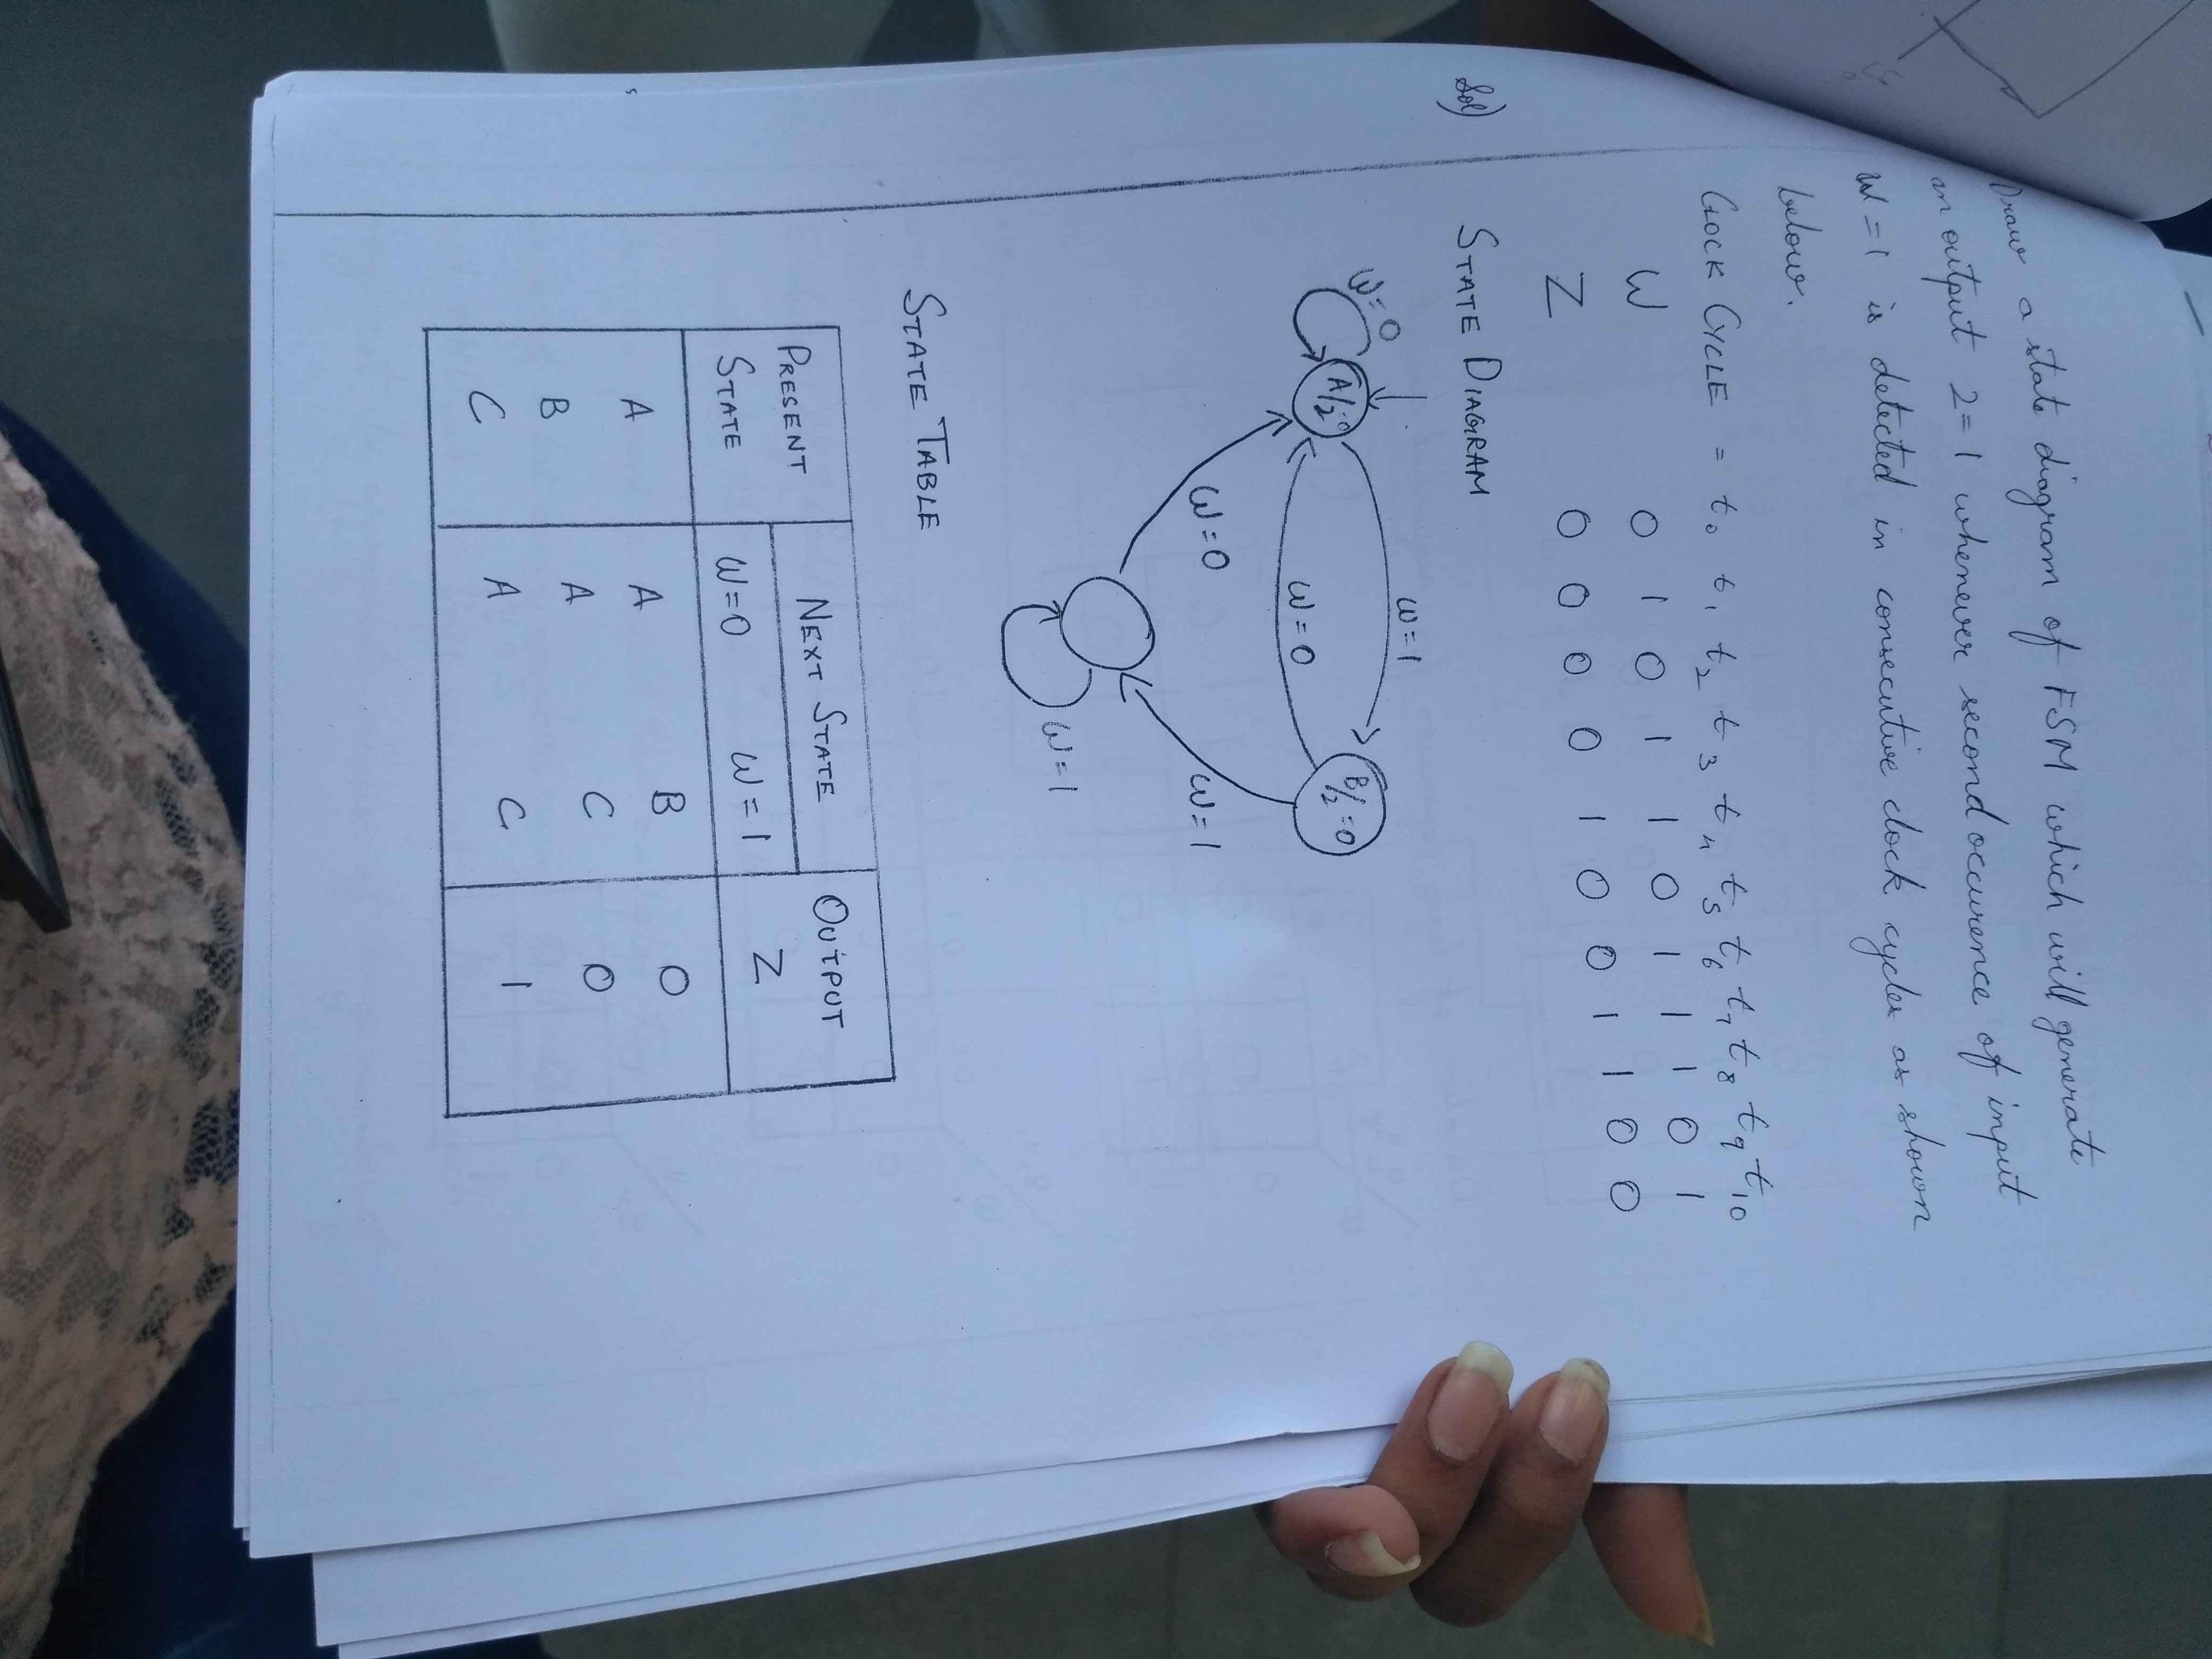 Draw a state diagram of FSM which will generate
an output 2=1 whenever second occurence of input
W=1 is detected in consecutive clock cycles as shown
below.
CLOCK CYCLE = t0 t1 t2 t3 t4 t5 t6 t7 t8 t9 t10
W 0 1 0 1 1 0 1 1 1 0 1
Z 0 0 0 0 1 0 0 1 1 0 0
Sol)
STATE DIAGRAM
W=0
A/2=0
W=1
W=0
B/2=0
W=0
W=1
W=1
STATE TABLE
PRESENT STATE NEXT STATE OUTPUT
W=0 W=1 Z
A A B 0
B A C 0
C A C 1